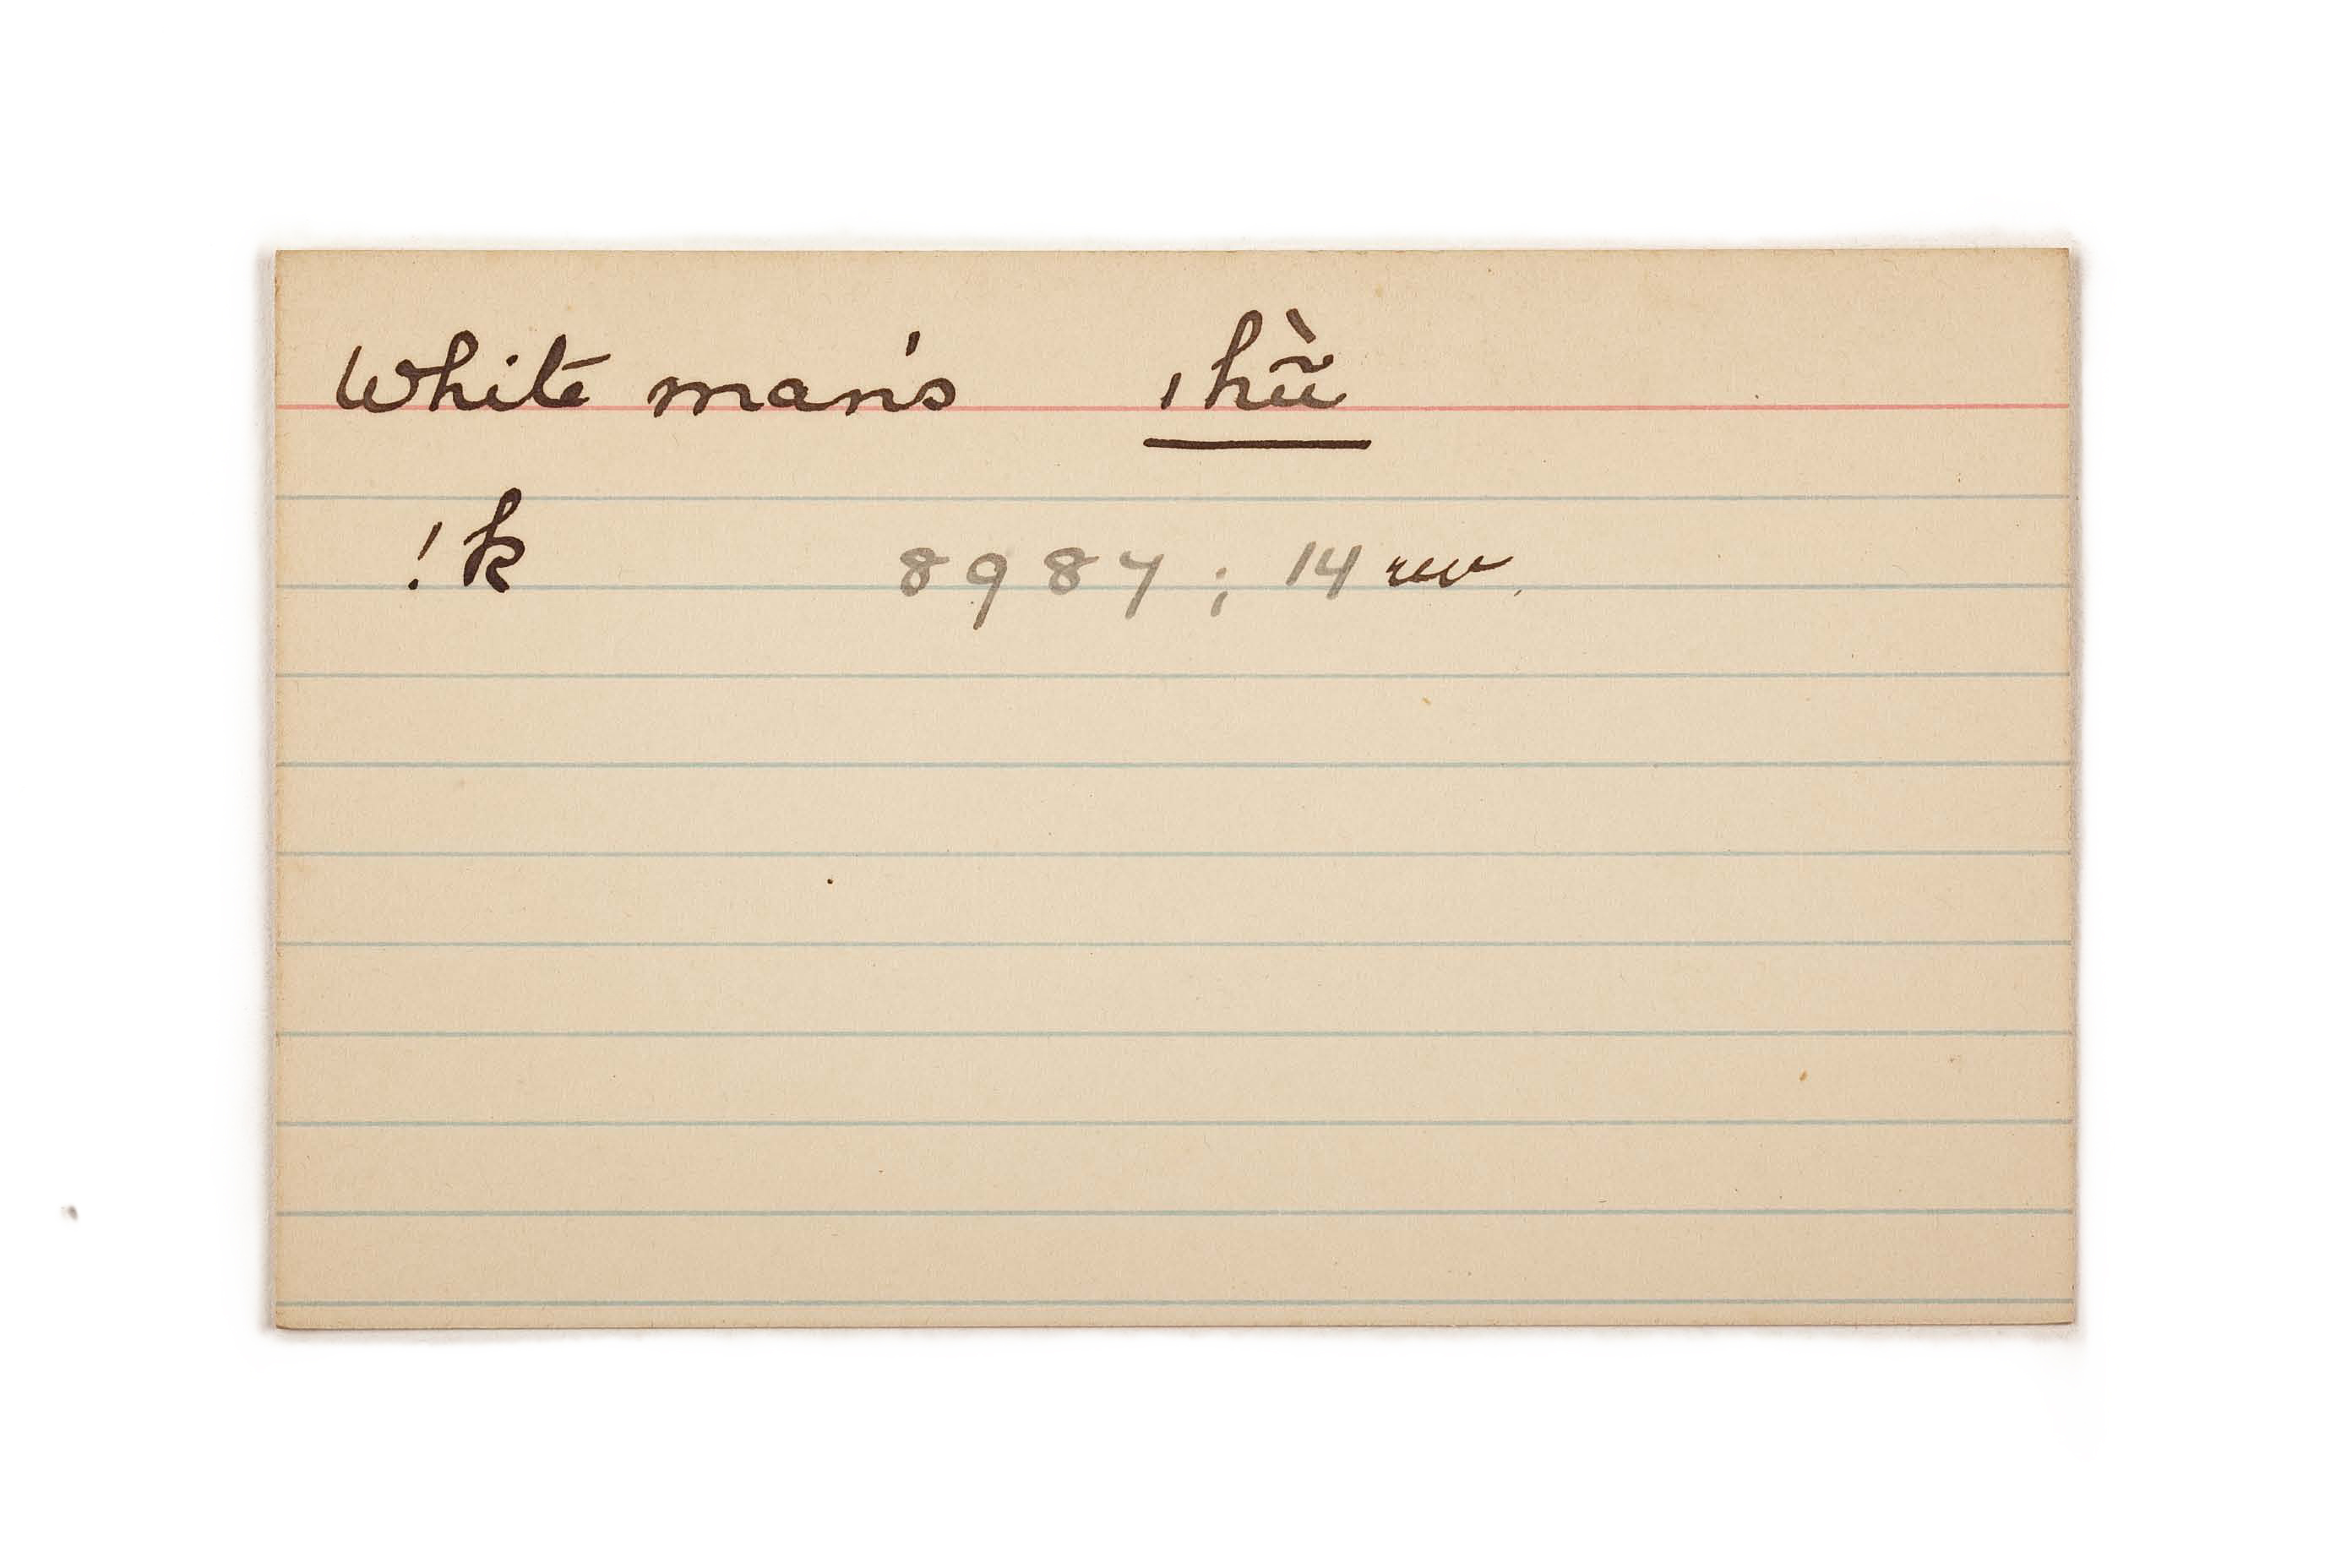 White man's ıhũ̀
!k 8987; 14 rev.